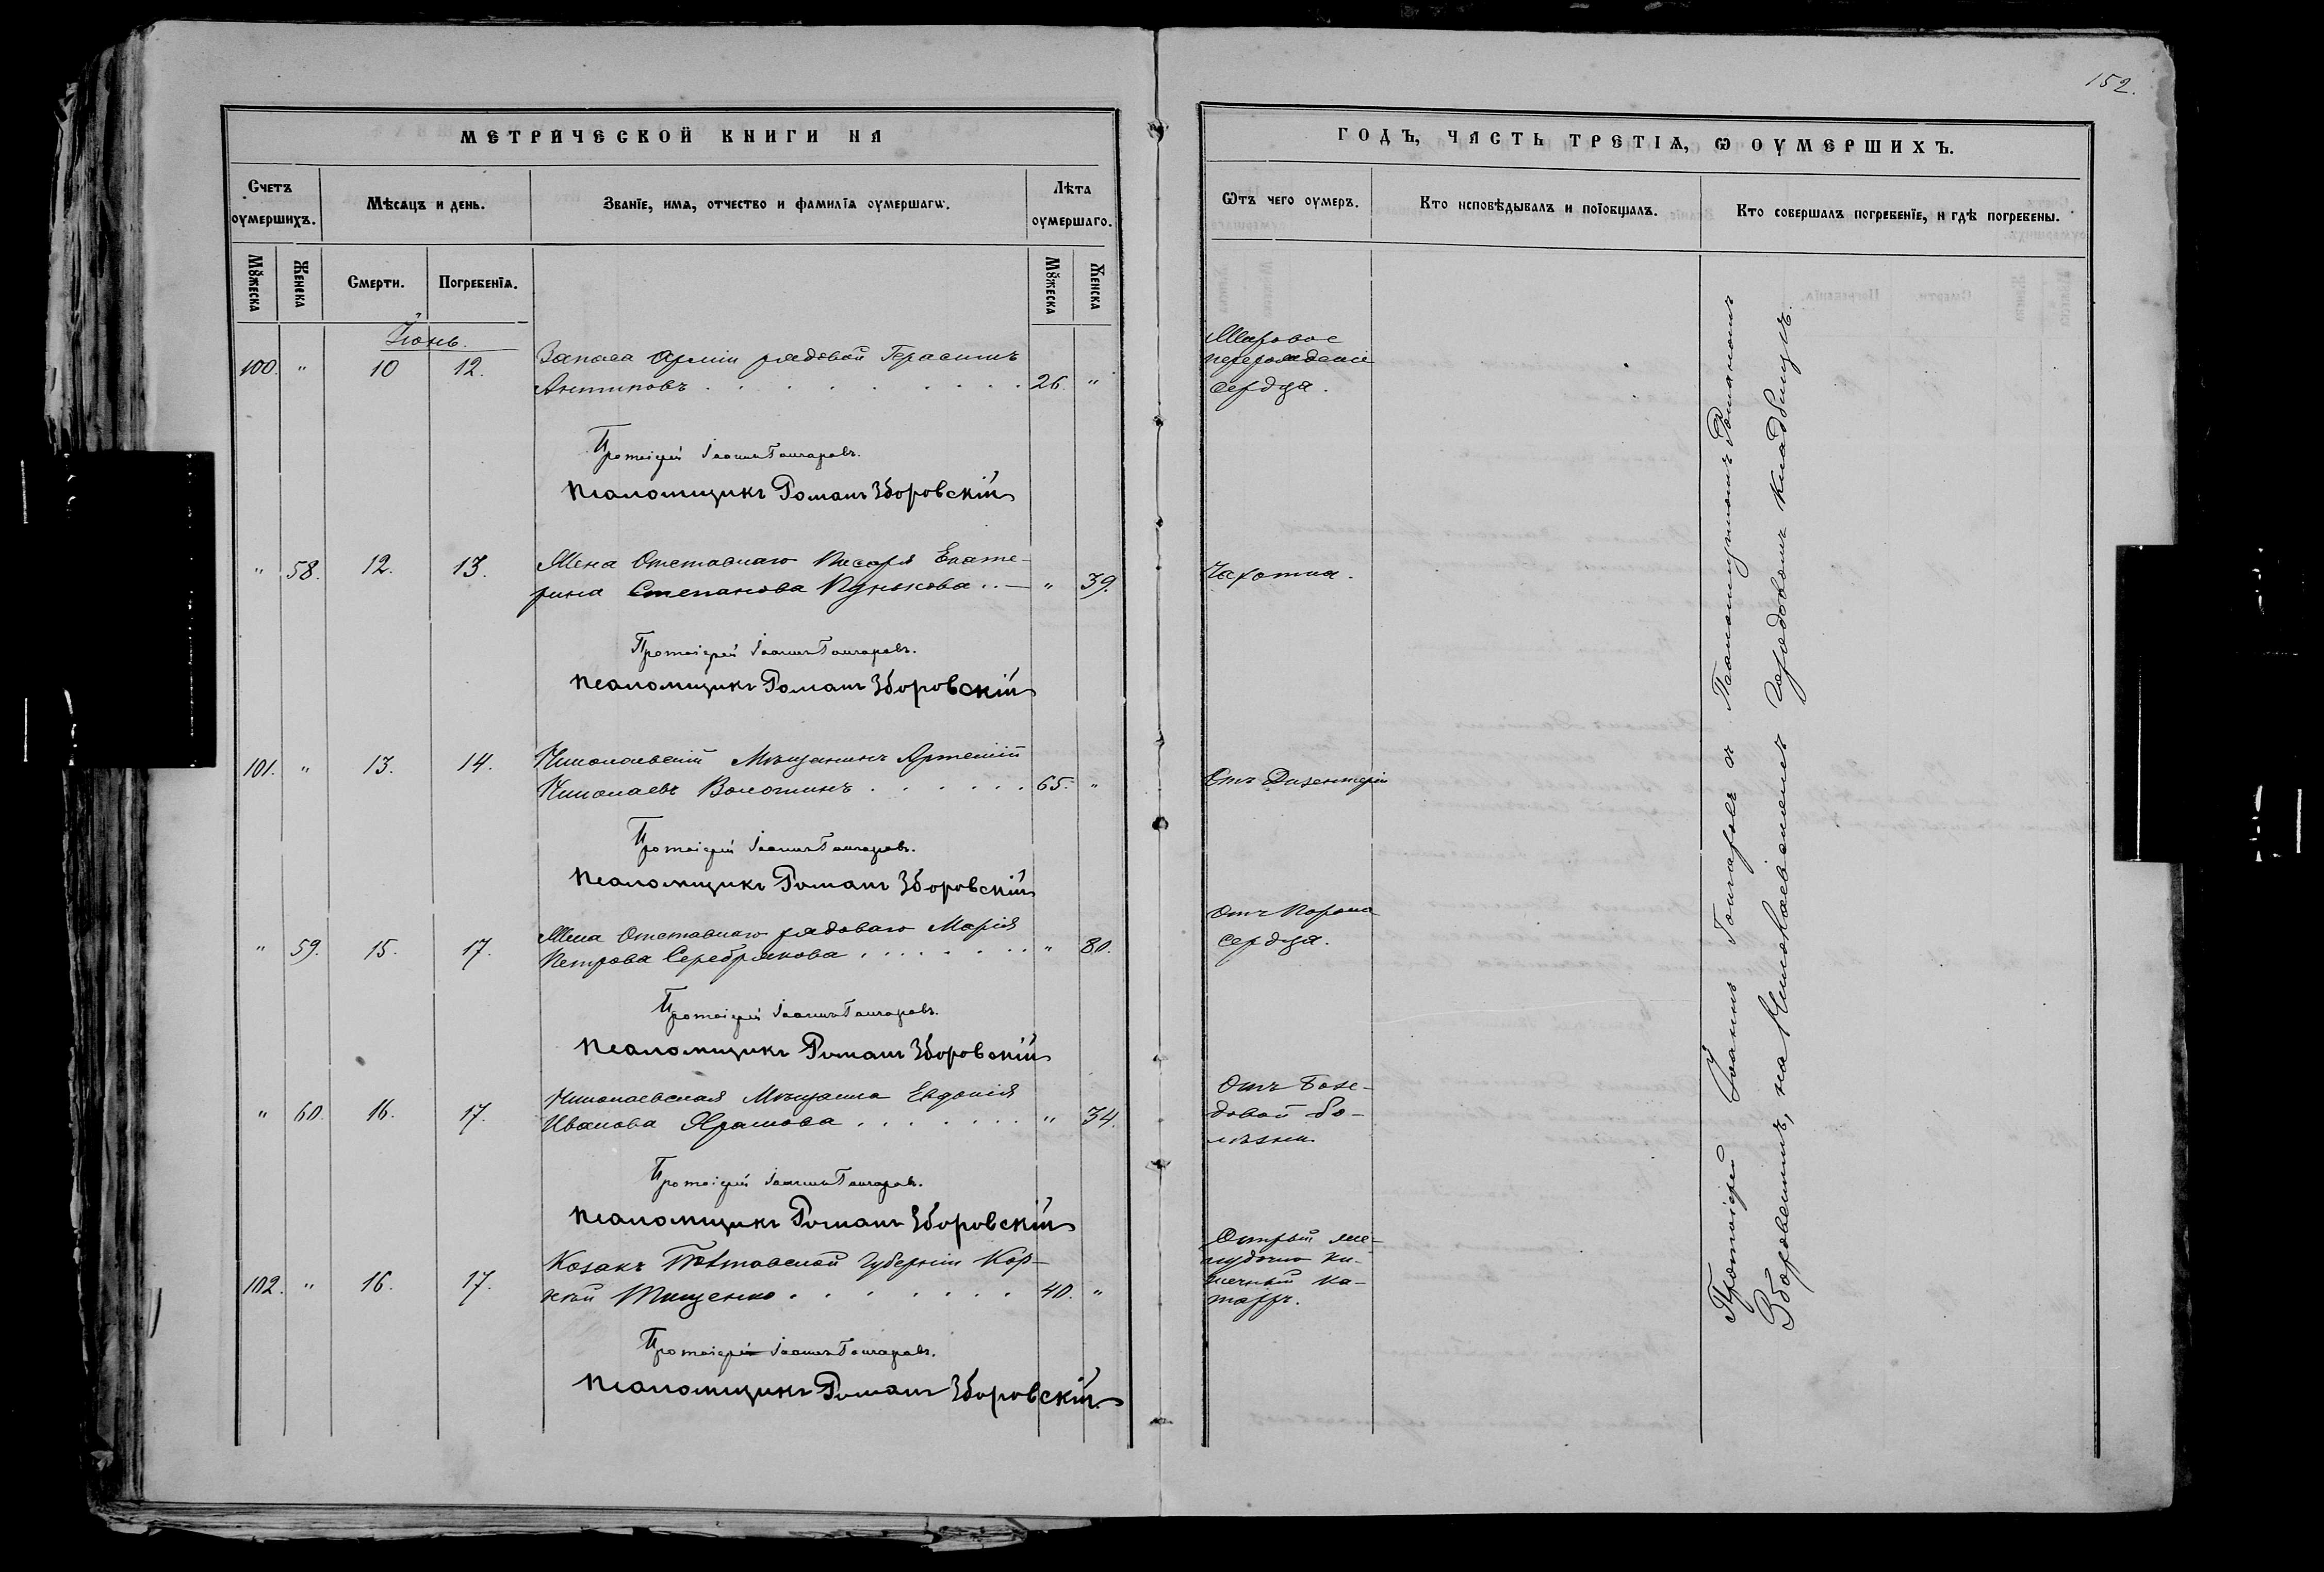 152.
МЕТРИЧЕСКОЙ КНИГИ НА
ГОДЪ, ЧАСТЬ ТРЕТІѦ, Ѡ ОУМЕРШИХЪ.
Счетъ
оумершихъ.
Мѣсѧцъ и день.
Званїе, имѧ, отчество и фамилїѧ оумершагѡ.
Лѣта
оумершаго.
Мꙋжеска
Женска
Смерти.
Погребенїѧ.
Мꙋжеска
Женска
Ѿтъ чего оумеръ.
Кто исповѣдывалъ и пріобщалъ.
Кто совершалъ погребенїе, и гдѣ погребены.
Іюнь.
100. " 10 12. Запаса Арміи рядовой Герасимъ
Антиповъ . . . . . . . . 26 "
Жировое
перерожденіе
сердца.
Протоіерей Іоаннъ Гончаровъ.
Псаломщикъ Романъ Зборовскій
" 58. 12. 13. Жена Отставнаго Писаря Екате-
рина Степанова " 39.
Чахотка.
Протоіерей Іоаннъ Гончаровъ.
Псаломщикъ Романъ Зборовскій
101. " 13. 14. Николаевскій Мѣщанинъ Артемій
Николаевъ Волошинъ . . . . . . 65. "
Отъ Дизентеріи
Протоіерей Іоаннъ Гончаровъ.
Псаломщикъ Романъ Зборовскій
" 59. 15. 17. Жена Отставнаго рядоваго Марія
Петрова Серебрякова . . . . . . . " 80.
Отъ Порока
сердца.
Протоіерей Іоаннъ Гончаровъ.
Псаломщикъ Романъ Зборовскій
" 60. 16. 17. Николаевская Мѣщанка Евдокія
Иванова . . . . . . . " 34.
Отъ Базе-
довой бо-
лѣзни
Протоіерей Іоаннъ Гончаровъ.
Псаломщикъ Романъ Зборовскій
102. " 16. 17. Козакъ Полтавской Губерніи Кор-
ній Тищенко . . . . . . . 40. "
Острый же-
лудочно ки-
шечный ка-
тарръ.
Протоіерей Іоаннъ Гончаровъ.
Псаломщикъ Романъ Зборовскій.
Протоіерей Іоаннъ Гончаровъ съ Псаломщикомъ Романомъ
Зборовскимъ, на Николаевскомъ городовомъ кладбищѣ.